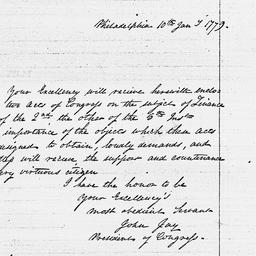 Philadelphia 10th Jany 1779.
Your Excellency will receive herewith enclos
two acts of Congress on the subject of Finance
of the 2nd the other of the 5th Inst
importance of the objects which these acts
esigned to obtain, loudly demands, and
they will receive, the support and countenance
ery virtuous citizen
I have the honor to be
Your Excellency's
most obedient Servant
John Jay
President of Congress.